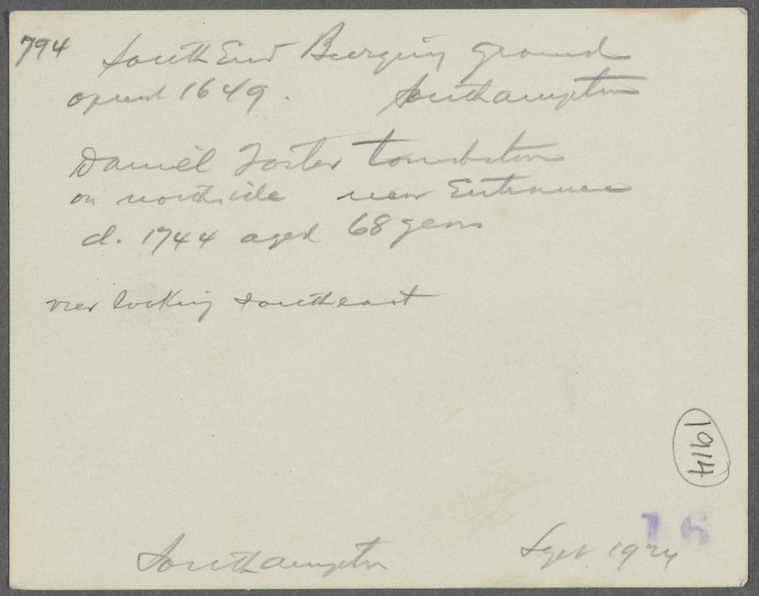 794 South End Burying ground
opened 1649. Southampton
Daniel Foster tombstone
on northside near Entrance
d. 1744 aged 68 years
view looking southeast
1614
16
Southampton Sept. 1924